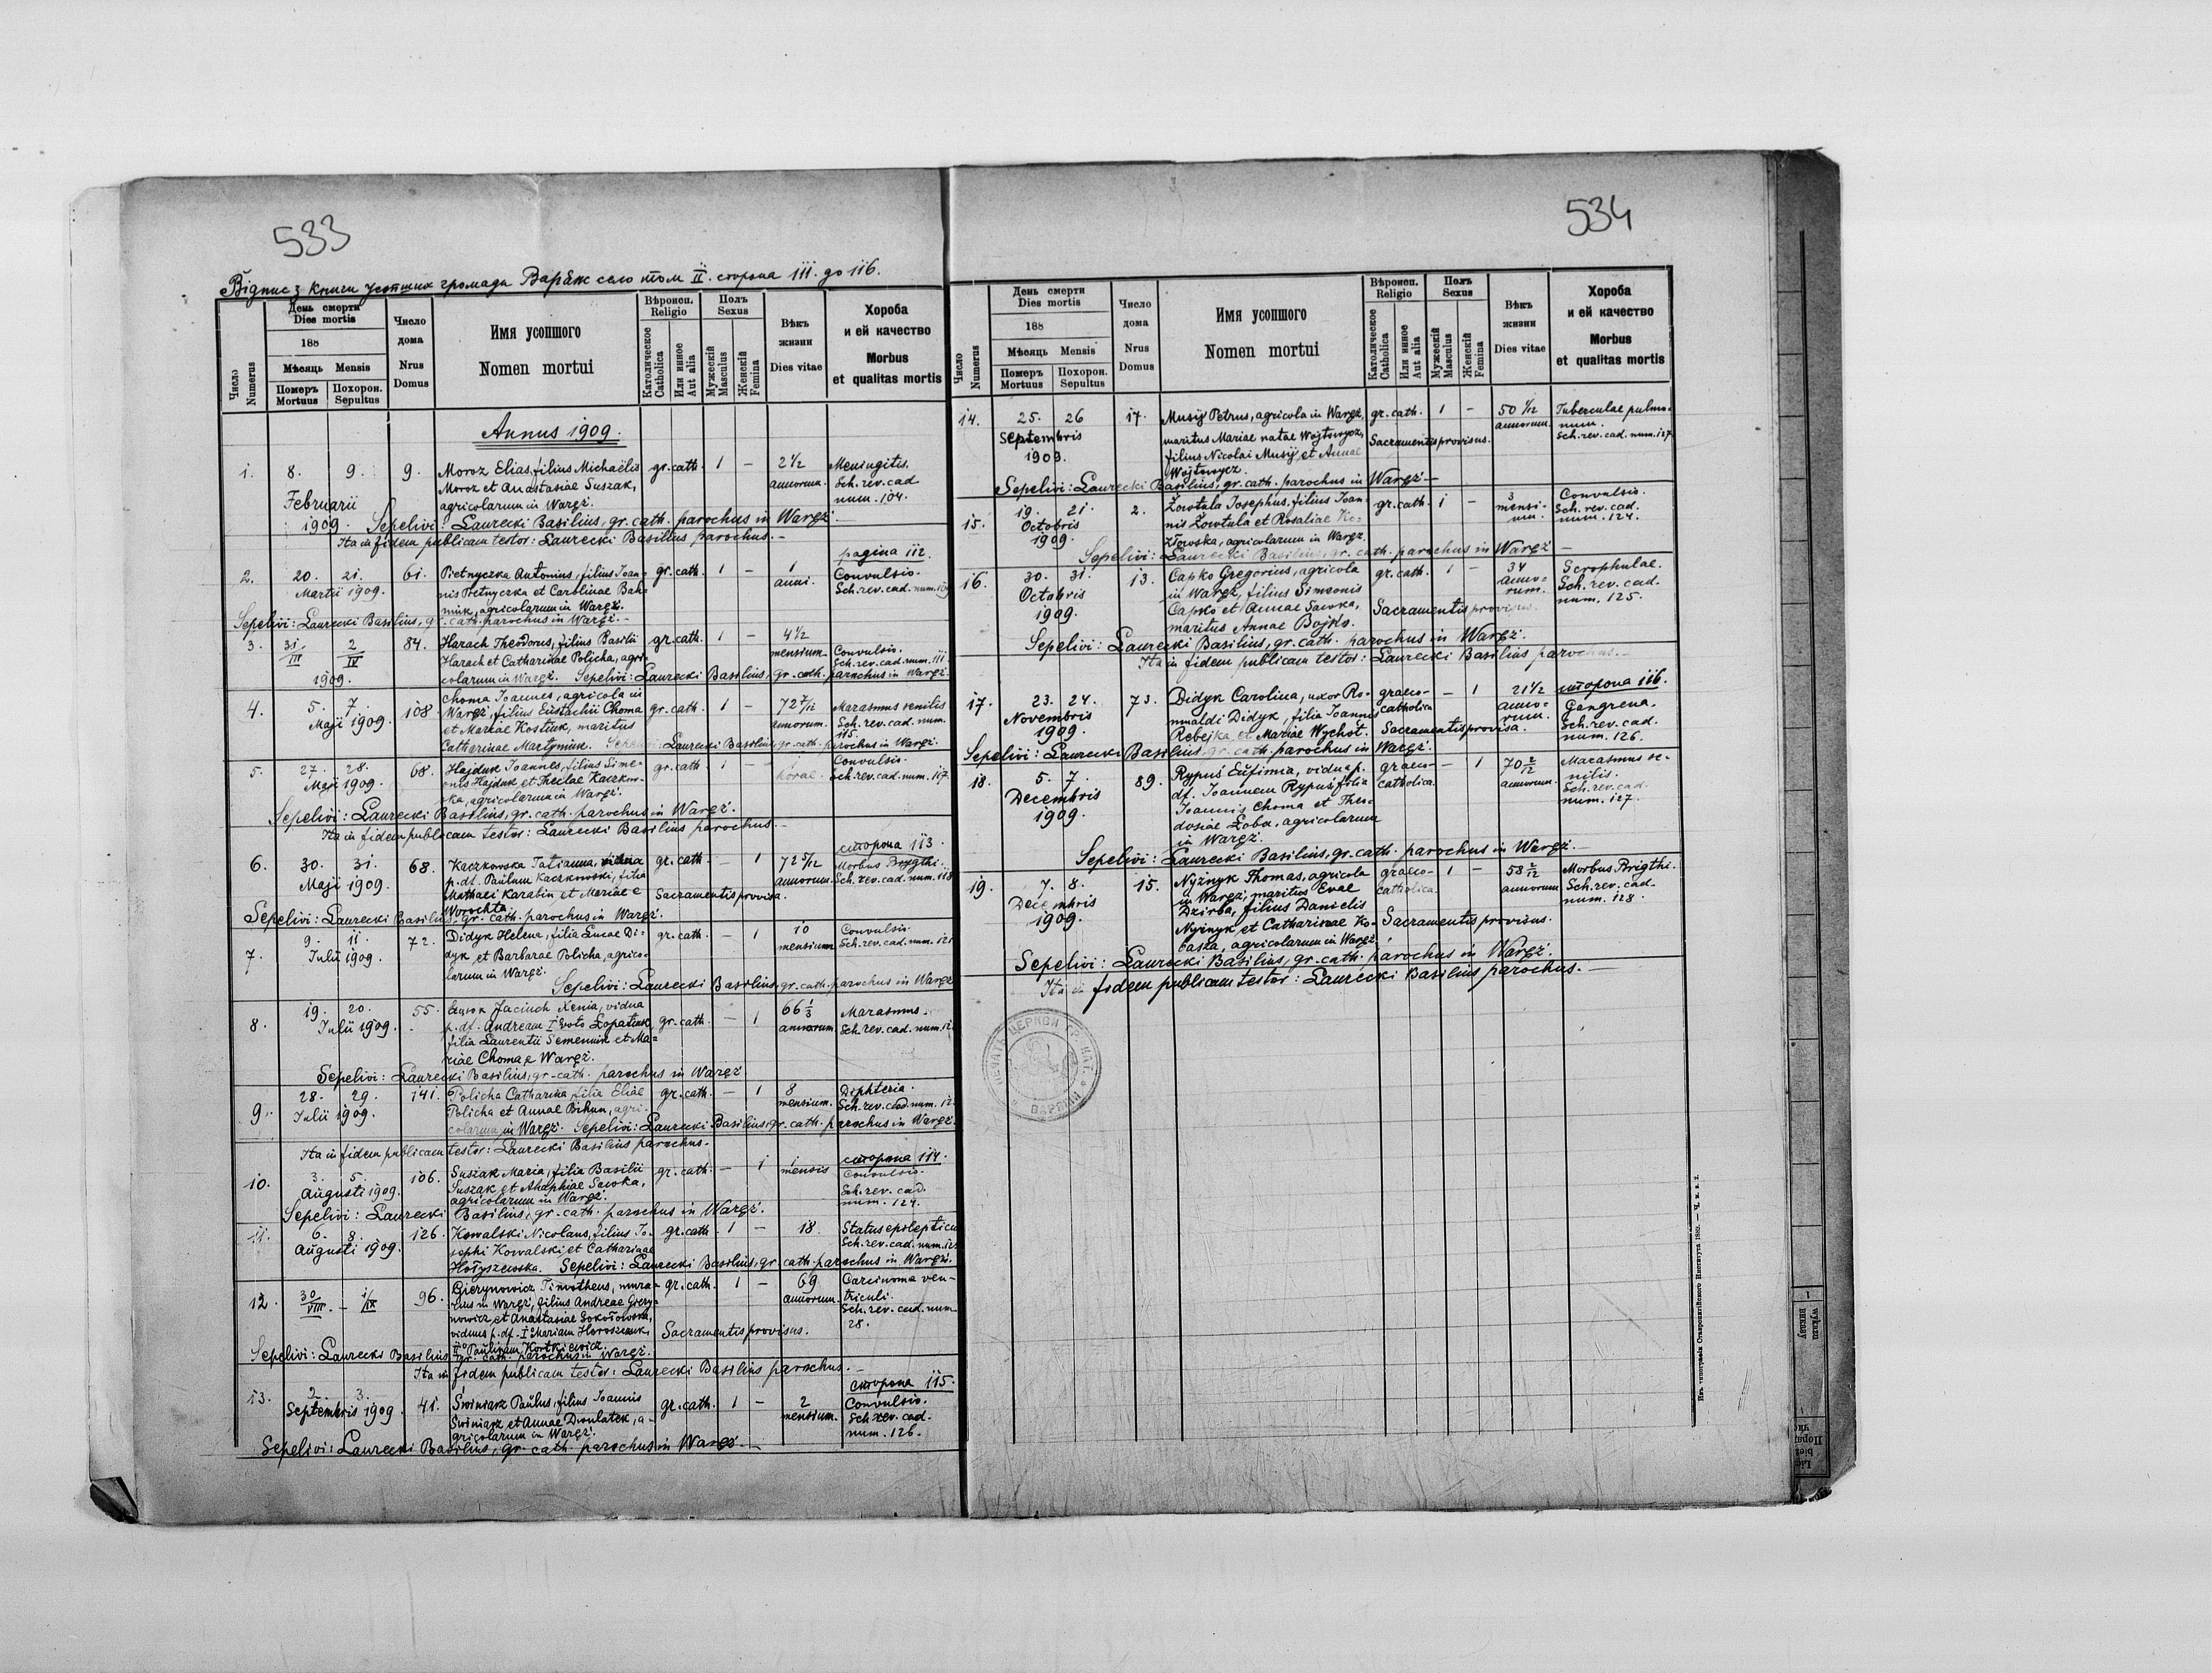 533
Відпис з книги усопших громади Варяж село том II. сторона 111. до 116.
Число
Numerus
День смерти
Dies mortis
188
Мѣсяць Mensis
Померъ
Mortuus
Похорон.
Sepultus
Число
дома
Nrus
Domus
Имя усопшого
Nomen mortui
Вѣроисп.
Religio
Католическое
Catholica
Или инное
Aut alia
Полъ
Sexus
Мужескій
Masculus
Женскій
Femina
Вѣкъ
жизни
Dies vitae
Хороба
и ей качество
Morbus
et qualitas mortis
Annus 1909.
1. 8. 9. 9. Moroz Elias, filius Michaëlis gr. cath. 1 — 2 1/2 Meningitis.
Moroz et Anastasiae Suszak, annorum. Sch. rev. cad
Februarii agricolarum in Waręż. num. 104.
1909. Sepelivi: Laurecki Basilius, gr. cath. parochus in Waręż
Ita in fidem publicam testor: Laurecki Basilius parochus. —
pagina 112.
2. 20. 21. 61. Pietnyczka Antonius, filius Ioan- gr. cath. 1 — 1 Convulsio.
Martii 1909. nis Pietnyczka et Carolinae Bah- anni. Sch. rev. cad. num.
niuk, agricolarum in Waręż.
Sepelivi: Laurecki Basilius, gr. cath. parochus in Waręż. —
3. 31/III 2/IV 84. Harach Theodorus, filius Basilii gr. cath. 1 — 4 1/2
Harach et Catharinae Policha, agri- mensium. Convulsio.
Sch. rev. cad. num. 111.
1909. colarum in Waręż. Sepelivi: Laurecki Basilius, gr. cath. parochus in Waręż
4. 5. 7. 108. Choma Ioannes, agricola in
Maji 1909. Waręż, filius Eustachii Choma gr. cath. 1 — 72 7/12 Marasmus senilis
et Mariae Kostiuk, maritus annorum. Sch. rev. cad. num.
115.
Catharinae Martyniuk. Sepelivi: Laurecki Basilius, gr. cath. parochus in Waręż.
5. 27. 28. 68. Hajduk Ioannes, filius Sime- gr. cath. 1 — 1 Convulsio.
Maji 1909. onis Hajduk et Theclae Kaczkow- horae. Sch. rev. cad. num. 117.
ska, agricolarum in Waręż.
Sepelivi: Laurecki Basilius, gr. cath. parochus in Waręż.
Ita in fidem publicam testor: Laurecki Basilius parochus. —
сторона 113.
6. 30. 31. 68. Kaczkowska Tatianna, vidua gr. cath. — 1 72 5/12 Morbus Brygthi.
Maji 1909. p. df. Paulum Kaczkowski, filia annorum. Sch. rev. cad. num. 118
Mathaei Karabin et Mariae e Sacramentis provisa.
Worochta.
Sepelivi: Laurecki Basilius, gr. cath. parochus in Waręż.
7. 9. 11. 72. Didyk Helena, filia Lucae Di- gr. cath. — 1 10 Convulsio.
Iulii 1909. dyk et Barbarae Policha, agrico- mensium Sch. rev. cad. num.
larum in Waręż.
Sepelivi: Laurecki Basilius, gr. cath. parochus in Waręż
8. 19. 20. 55. Jacinch Xenia, vidua 66 1/3 Marasmus.
Iulii 1909. p. df. Andream I voto Łopatiuk, gr. cath. — 1 annorum. Sch. rev. cad. num.
filia Laurentii Semeniuk et Ma-
riae Choma e Waręż.
Sepelivi: Laurecki Basilius, gr. cath. parochus in Waręż
9. 28. 29. 141. Policha Catharina, filia Eliae gr. cath. — 1 8 Diphteria.
Iulii 1909. Policha et Annae Bihun, agri- mensium. Sch. rev. cad. num.
colarum in Waręż. Sepelivi: Laurecki Basilius, gr. cath. parochus in Waręż.
Ita in fidem publicam testor: Laurecki Basilius parochus.
сторона 114.
10. 3. 5. 106. Suszak Maria, filia Basilii gr. cath. — 1 1 Convulsio.
Augusti 1909. Suszak et Ahaphiae Sawka, mensis Sch. rev. cad.
agricolarum in Waręż. num. 124.
Sepelivi: Laurecki Basilius, gr. cath. parochus in Waręż.
11. 6. 8. 126. Kowalski Nicolaus, filius Io- gr. cath. 1 — 18 Status epilepticus
Augusti 1909. sephi Kowalski et Catharinae Sch. rev. cad. num.
Hołyszewska. Sepelivi: Laurecki Basilius, gr. cath. parochus in Waręż.
12. 30/VIII — 1/IX 96. Gierynowicz Timotheus, mura- gr. cath. 1 — 69 Carcinoma ven-
rius in Waręż, filius Andreae Giery- annorum. triculi.
nowicz et Anastasiae Sokołowska, Sch. rev. cad. num.
viduus p. df. I° Mariam Horoszczuk, Sacramentis provisus. 28.
II° Paulinam Kortkiewicz.
Sepelivi: Laurecki Basilius gr. cath. parochus in Waręż.
Ita in fidem publicam testor: Laurecki Basilius parochus. —
сторона 115.
13. 2. 3. 41. Świniarz Paulus, filius Ioannis gr. cath. 1 — 2 Convulsio.
Septembris 1909. Świniarz et Annae Dwulatek, a- mensium. Sch. rev. cad.
gricolarum in Waręż. num. 126.
Sepelivi: Laurecki Basilius, gr. cath. parochus in Waręż. —
534
Число
Numerus
День смерти
Dies mortis
188
Мѣсяць Mensis
Померъ
Mortuus
Похорон.
Sepultus
Число
дома
Nrus
Domus
Имя усопшого
Nomen mortui
Вѣроисп.
Religio
Католическое
Catholica
Или инное
Aut alia
Полъ
Sexus
Мужескій
Masculus
Женскій
Femina
Вѣкъ
жизни
Dies vitae
Хороба
и ей качество
Morbus
et qualitas mortis
14. 25. 26 17. Musij Petrus, agricola in Waręż, gr. cath. 1 — 50 1/12 Tuberculae pulmo-
Septembris maritus Mariae natae Wojtowycz, Sacramentis provisus. annorum num.
1909. filius Nicolai Musij et Annae Sch. rev. cad. num. 127
Wojtowycz.
Sepelivi: Laurecki Basilius, gr. cath. parochus in Waręż —
15. 19. 21. 2. Żowtula Iosephus, filius Ioan- gr. cath. 1 — 3 Convulsio.
Octobris nis Żowtula et Rosaliae Ko- mensi- Sch. rev. cad.
1909. złowska, agricolarum in Waręż. um. num. 124.
Sepelivi: Laurecki Basilius, gr. cath. parochus in Waręż —
16. 30. 31. 13. Capko Gregorius, agricola gr. cath. 1 — 34 Scrophulae.
Octobris in Waręż, filius Simeonis anno- Sch. rev. cad.
1909. Capko et Annae Sawka, Sacramentis provisus. rum. num. 125.
maritus Annae Bojko.
Sepelivi: Laurecki Basilius, gr. cath. parochus in Waręż.
Ita in fidem publicam testor: Laurecki Basilius parochus. —
сторона 116.
17. 23. 24. 73. Didyk Carolina, uxor Ro- graeco- — 1 21 1/2 Gangrena.
Novembris mualdi Didyk, filia Ioannis catholica anno- Sch. rev. cad.
1909. Rebejka et Mariae Wychot. Sacramentis provisa. rum. num. 126.
Sepelivi: Laurecki Basilius, gr. cath. parochus in Waręż.
18. 5. 7. 89. Rypuś Eufimia, vidua p. graeco- — 1 70 2/12 Marasmus se-
Decembris df. Ioannem Rypuś, filia catholica. annorum. nilis.
1909. Ioannis Choma et Theo- Sch. rev. cad.
dosiae Łoba, agricolarum num. 127.
in Waręż.
Sepelivi: Laurecki Basilius, gr. cath. parochus in Waręż —
19. 7. 8. 15. Nyżnyk Thomas, agricola graeco- 1 — 58 2/12 Morbus Brigthi.
Decembris in Waręż, maritus Evae catholica. annorum Sch. rev. cad.
1909. Dzirba, filius Danielis num. 128.
Nyżnyk et Catharinae Ko- Sacramentis provisus.
basza, agricolarum in Waręż.
Sepelivi: Laurecki Basilius, gr. cath. parochus in Waręż.
Ita in fidem publicam testor: Laurecki Basilius parochus. —
ПЕЧАТЬ ЦЕРКВИ ГР. КАТ.
Изъ типографіи Ставропигійского Института 1889. — Ч. к. в. 2.